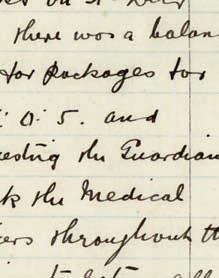 there was a balan
for packages for
: 0: 5. and
esting the Guardian
k the Medical
ers throughout th